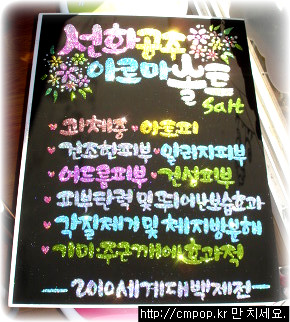 선화공주
아로마솔트
Salt
과체중 · 아토피
건조한피부 · 알러지피부
여드름피부 · 건선피부
피부탄력 및 뛰어난보습효과
각질제거 및 체지방분해
기미 주근깨에 효과적
-2010세계대백제전-
http://cmpop.kr 만 치세요.